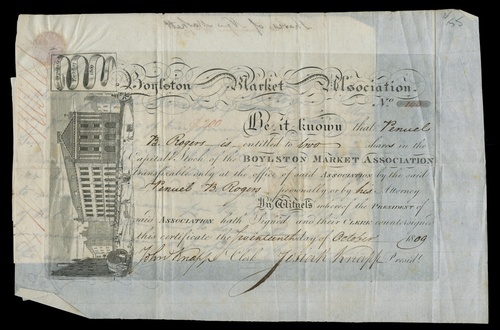 Boylston Market Association.
No
Be it known that Penuel
B. Rogers is entitled to two shares in the
Capital Stock of the BOYLSTON MARKET ASSOCIATION
transferable only at the office of said ASSOCIATION by the said
Penuel B. Rogers personally or by his Attorney
In Witness whereof the PRESIDENT of
said ASSOCIATION hath Signed and their CLERK countersigned
this certificate the day of October 1809
John Knapp Clerk Josiah Knapp Presidt.